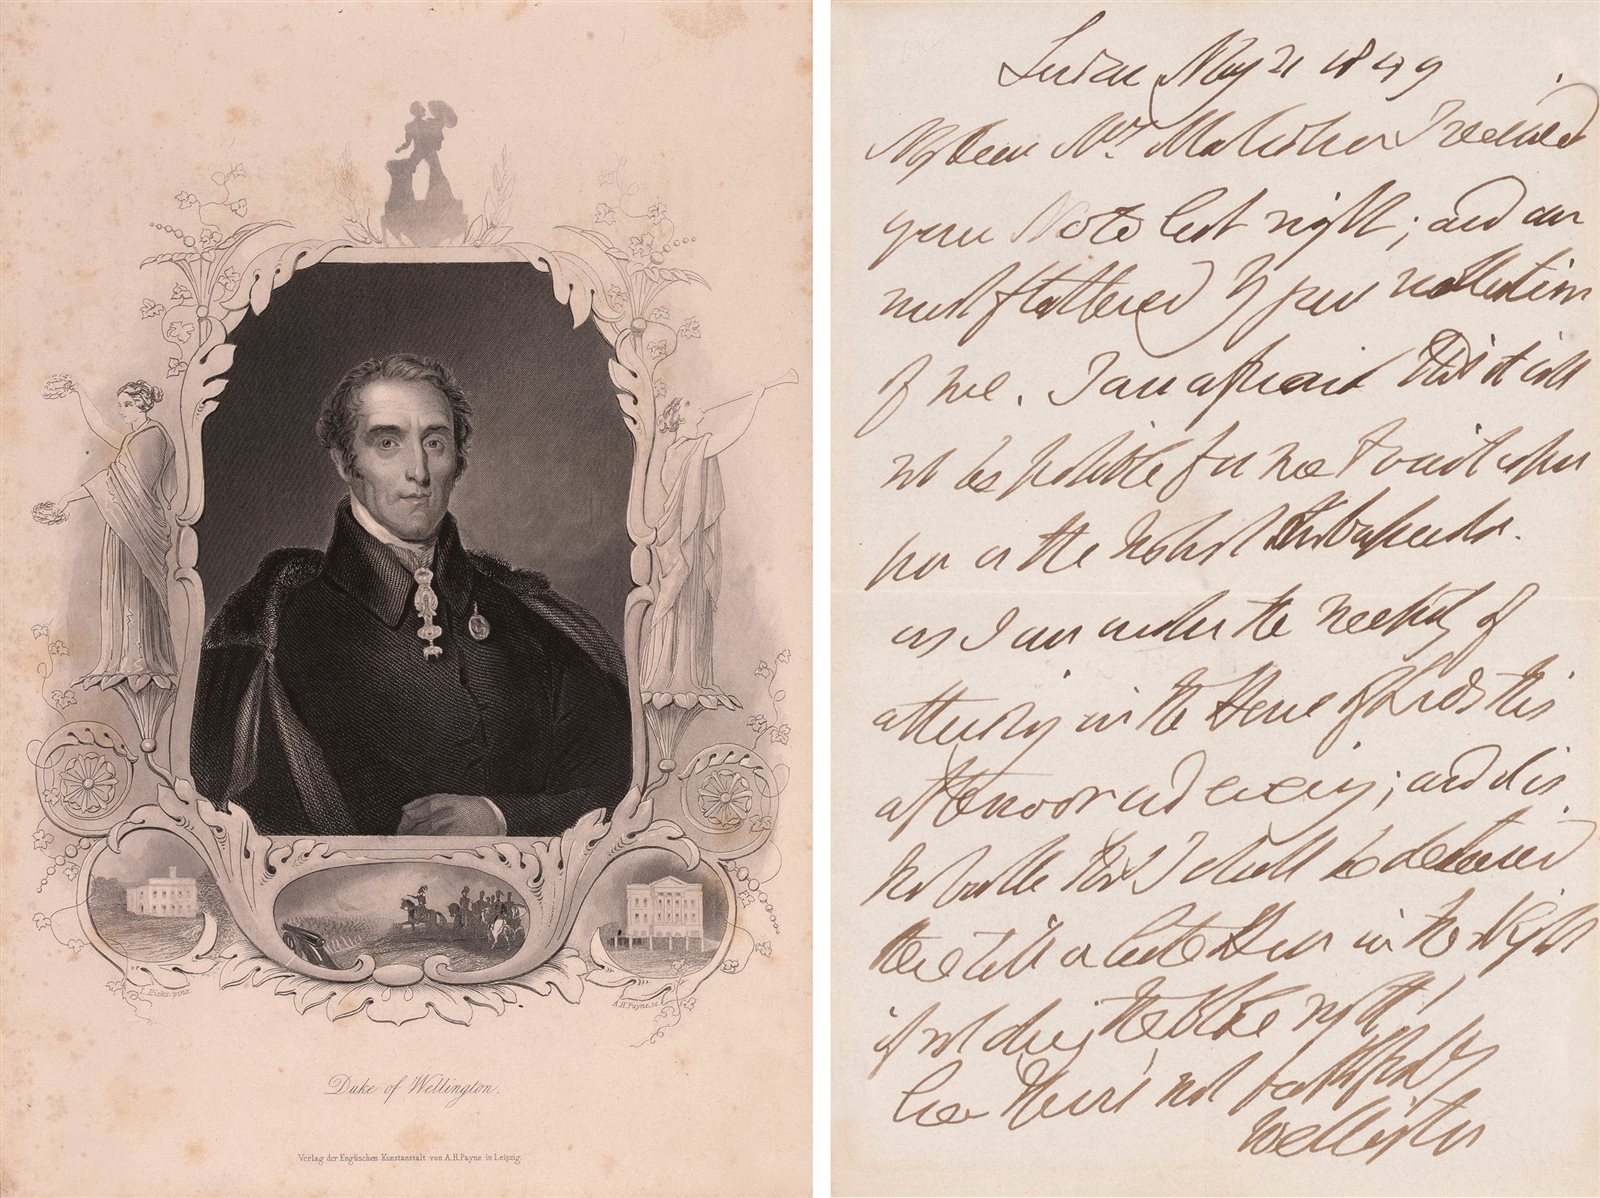 L. Hicks. pinx.
A.H. Payne sc.
Duke of Wellington.
Verlag der Englischen Kunstanstalt von A.H. Payne in Leipzig.
London May 21 1849
My dear Mr. I received
your Note last night; and am
most flattered by your recollection
of me. I am afraid that it will
not be possible for me to wait upon
you on the
as I am under the necessity of
attending in the House of Lords this
afternoon and evening; and it is
probable that I shall be detained
there till a late Hour in the Night
if not during the whole night!
Your most faithfully
Wellington